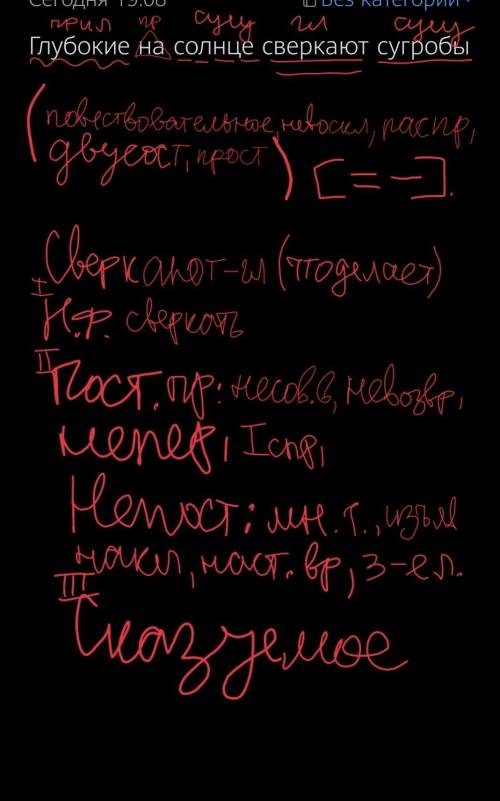 Сегодня 19:08 Без категории
прил пр сущ гл сущ
Глубокие на солнце сверкают сугробы
(повествовательное, невоскл, распр,
двусост, прост) [= -].
Сверкают-гл (чтоделает)
I
Н.ф. сверкать
II
Пост. пр: несов.в, невозвр,
непер, I спр,
Непост: мн.ч., изъяв
накл, наст. вр, 3-е л.
III
Сказуемое